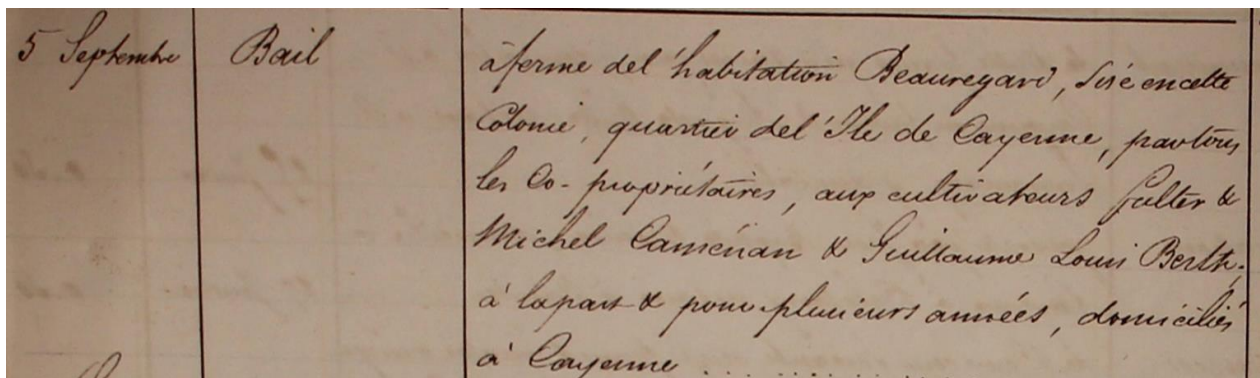 5 Septembre Bail à ferme de l'habitation Beauregard, sise en cette
Colonie, quartier de l'Ile de Cayenne, par tous
les Co-propriétaires, aux cultivateurs &
Michel & Guillaume Louis Berth,
à la part & pour plusieurs années, domiciliés
à Cayenne . . . . . . . . .